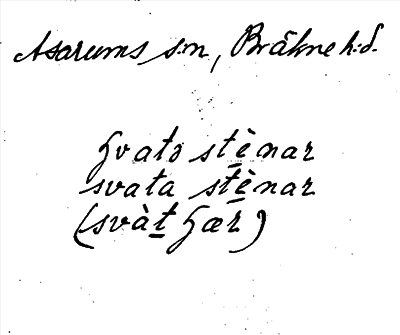 Asarums s:n, Bräkne h:d.
Hvato stènar
svata stènar
(svàt Hær)